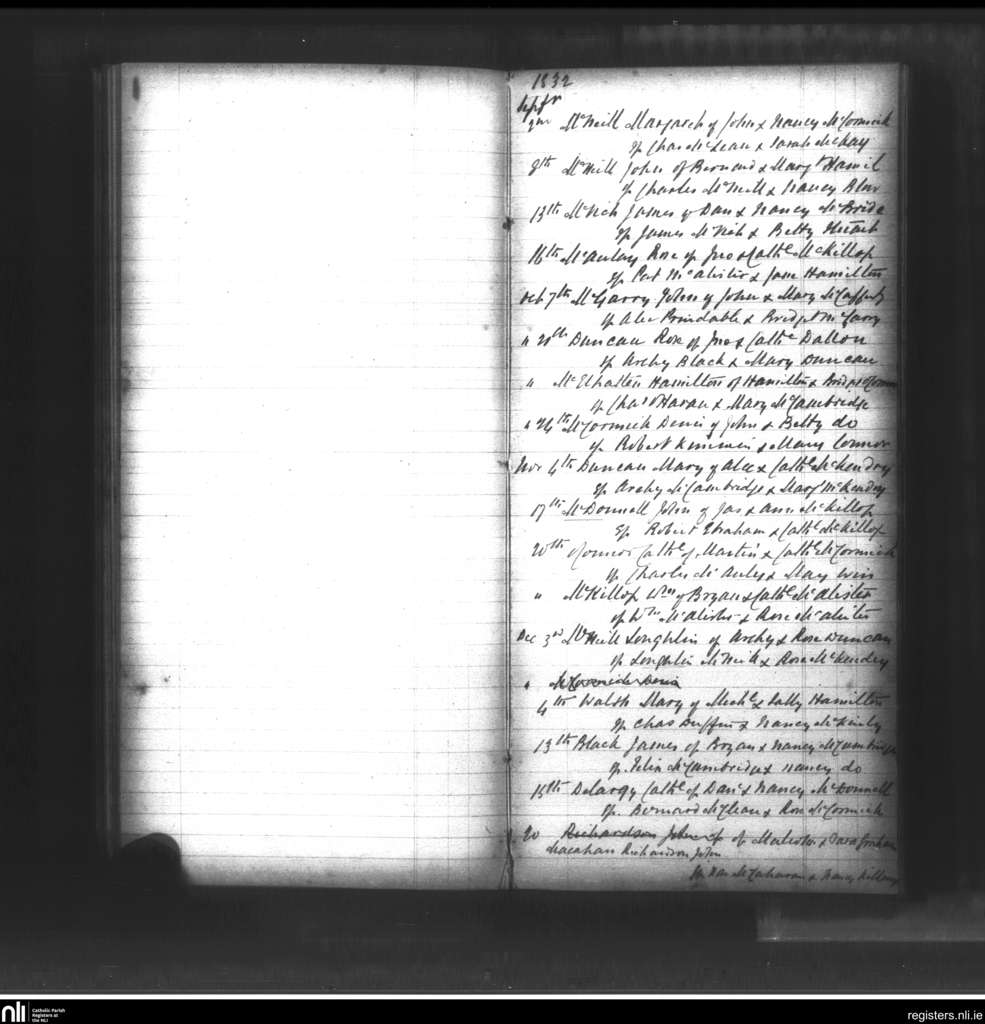 1832
Septr
McNeill Margaret of John & Nancy McCormick
Sp Chas McLean & Sarah McKay
8th McNeill John of Bernard & Margt Hamil
Sp Charles McNeill & Nancy Blav
13th McNich James of Dan & Nancy McBride
Sp James McNich & Betty
16th McAulay Rose of Jno & Cathe McKillop
Sp Pat McAlister & Jane Hamilton
Oct 7th McGarry John of John & Mary McCafferty
Sp Alex Brindable & Bridget McGarry
" 20th Duncan Rose of Jno & Cathe Dallon
Sp Archy Black & Mary Duncan
" McElhatten Hamilton of Hamilton & Bridget OConnor
Sp Chas OHaran & Mary McCambridge
" 24th McCormick Denis of John & Betty do
Sp Robert & Mary Connor
Nov 4th Duncan Mary of Alex & Cathe McKendry
Sp Archy McCambridge & Margt McKendry
17th McDonnell John of Jas & Ann McKillop
Sp Robert Ebraham & Cathe McKillop
20th OConnor Cathe of Martin & Cathe McCormick
Sp Charles McAuley & Mary Win
" McKillop Wm of Bryan & Cathe McAlister
Sp Wm McAlister & Rose McAlister
Dec 3rd McNeill Loughlin of Archy & Rose Duncan
Sp Loughlin McNeill & Rose McKendry
" McCormick Denis
4th Walsh Mary of Michl & Sally Hamilton
Sp Chas Duffin & Nancy McKinly
13th Black James of Bryan & Nancy McCambridge
Sp. Felix McCambridge & Nancy do
15th Delargy Cathe of Danl & Nancy McDonnell
Sp. Bernard McClean & Rose McCormick
20 Richardson John of Malcolm & Sara Graham
Macahan Richardson John
Sp McCaharan & Nancy
nli
Catholic Parish
Registers at
the NLI
registers.nli.ie